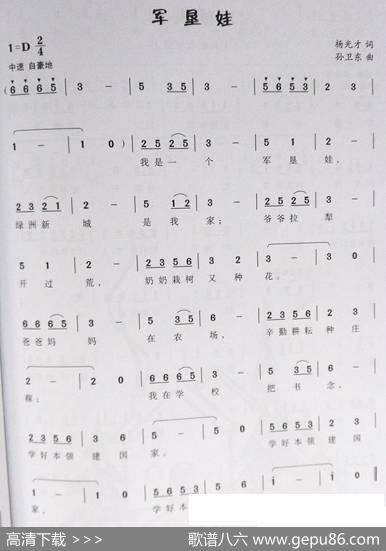 军垦娃
1=D 2/4
杨光才 词
中速 自豪地
孙卫东 曲
(6 6 6 5 | 3 - | 5 3 5 | 3 - | 5 6 5 3 | 2 3 |
1 - | 1 0) | 2 5 2 5 | 3 - | 5 1 | 2 - |
我是一个 军垦娃,
2 3 2 1 | 2 - | 5 1 2 | 3 - | 2 5 2 5 | 3 - |
绿洲新城 是我家; 爷爷拉犁
5 1 | 2 - | 3 5 5 6 | 5 3 | 2 - | 2 0 |
开过荒, 奶奶栽树又种花。
6 6 6 5 | 3 - | 5 3 5 | 6 - | 2 3 5 6 | 5 3 |
爸爸妈妈 在农场, 辛勤耕耘种庄
2 - | 2 - | 3 2 3 5 | 6 - | 5 3 5 | 6 - |
稼; 我在学校 把书念,
2 3 5 6 | 3 6 | 5 - | 5 0 | 2 3 5 6 | 5 3 |
学好本领建国家。 学好本领建国
1 - | 1 0 | 2 3 5 6 | 5 6 | 1 - | 1 0 ‖
家。 学好本
高清下载 >>> 歌谱八六 www.gepu86.com